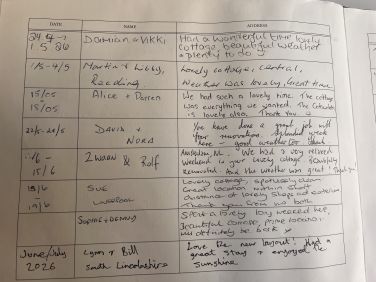 DATE NAME ADDRESS
24.4 - 1.5.26 Damian + Vikki Had a wonderful time lovely
cottage, beautiful weather
+ plenty to do
1/5 - 4/5 Martin + Libby, Lovely cottage, central,
Reading Weather was lovely, Great time
15/05 Alice + Darren We had such a lovely time. The cottage
15/05 was everything we wanted. The
is lovely also. Thank you
David + You have done a great job with
Nora your renovations. Splendid week
here - good weather too
/6 - & Rolf " We had a very relaxed
15/6 weekend in your lovely cottage. Beautifully
Renovated. And the weather was great! Thank you
15/6 Sue Lovely cottage spotlessly clean
Great location within short
19/6 distance of lovely shops and
Thank you from us both
Sophie + Dennis Spent a lovely long weekend here,
Beautiful cottage, prime location
will definitely be back
June/July Lynn + Bill Love the new layout! Had a
2026 South Lincolnshire great stay + enjoyed the
sunshine